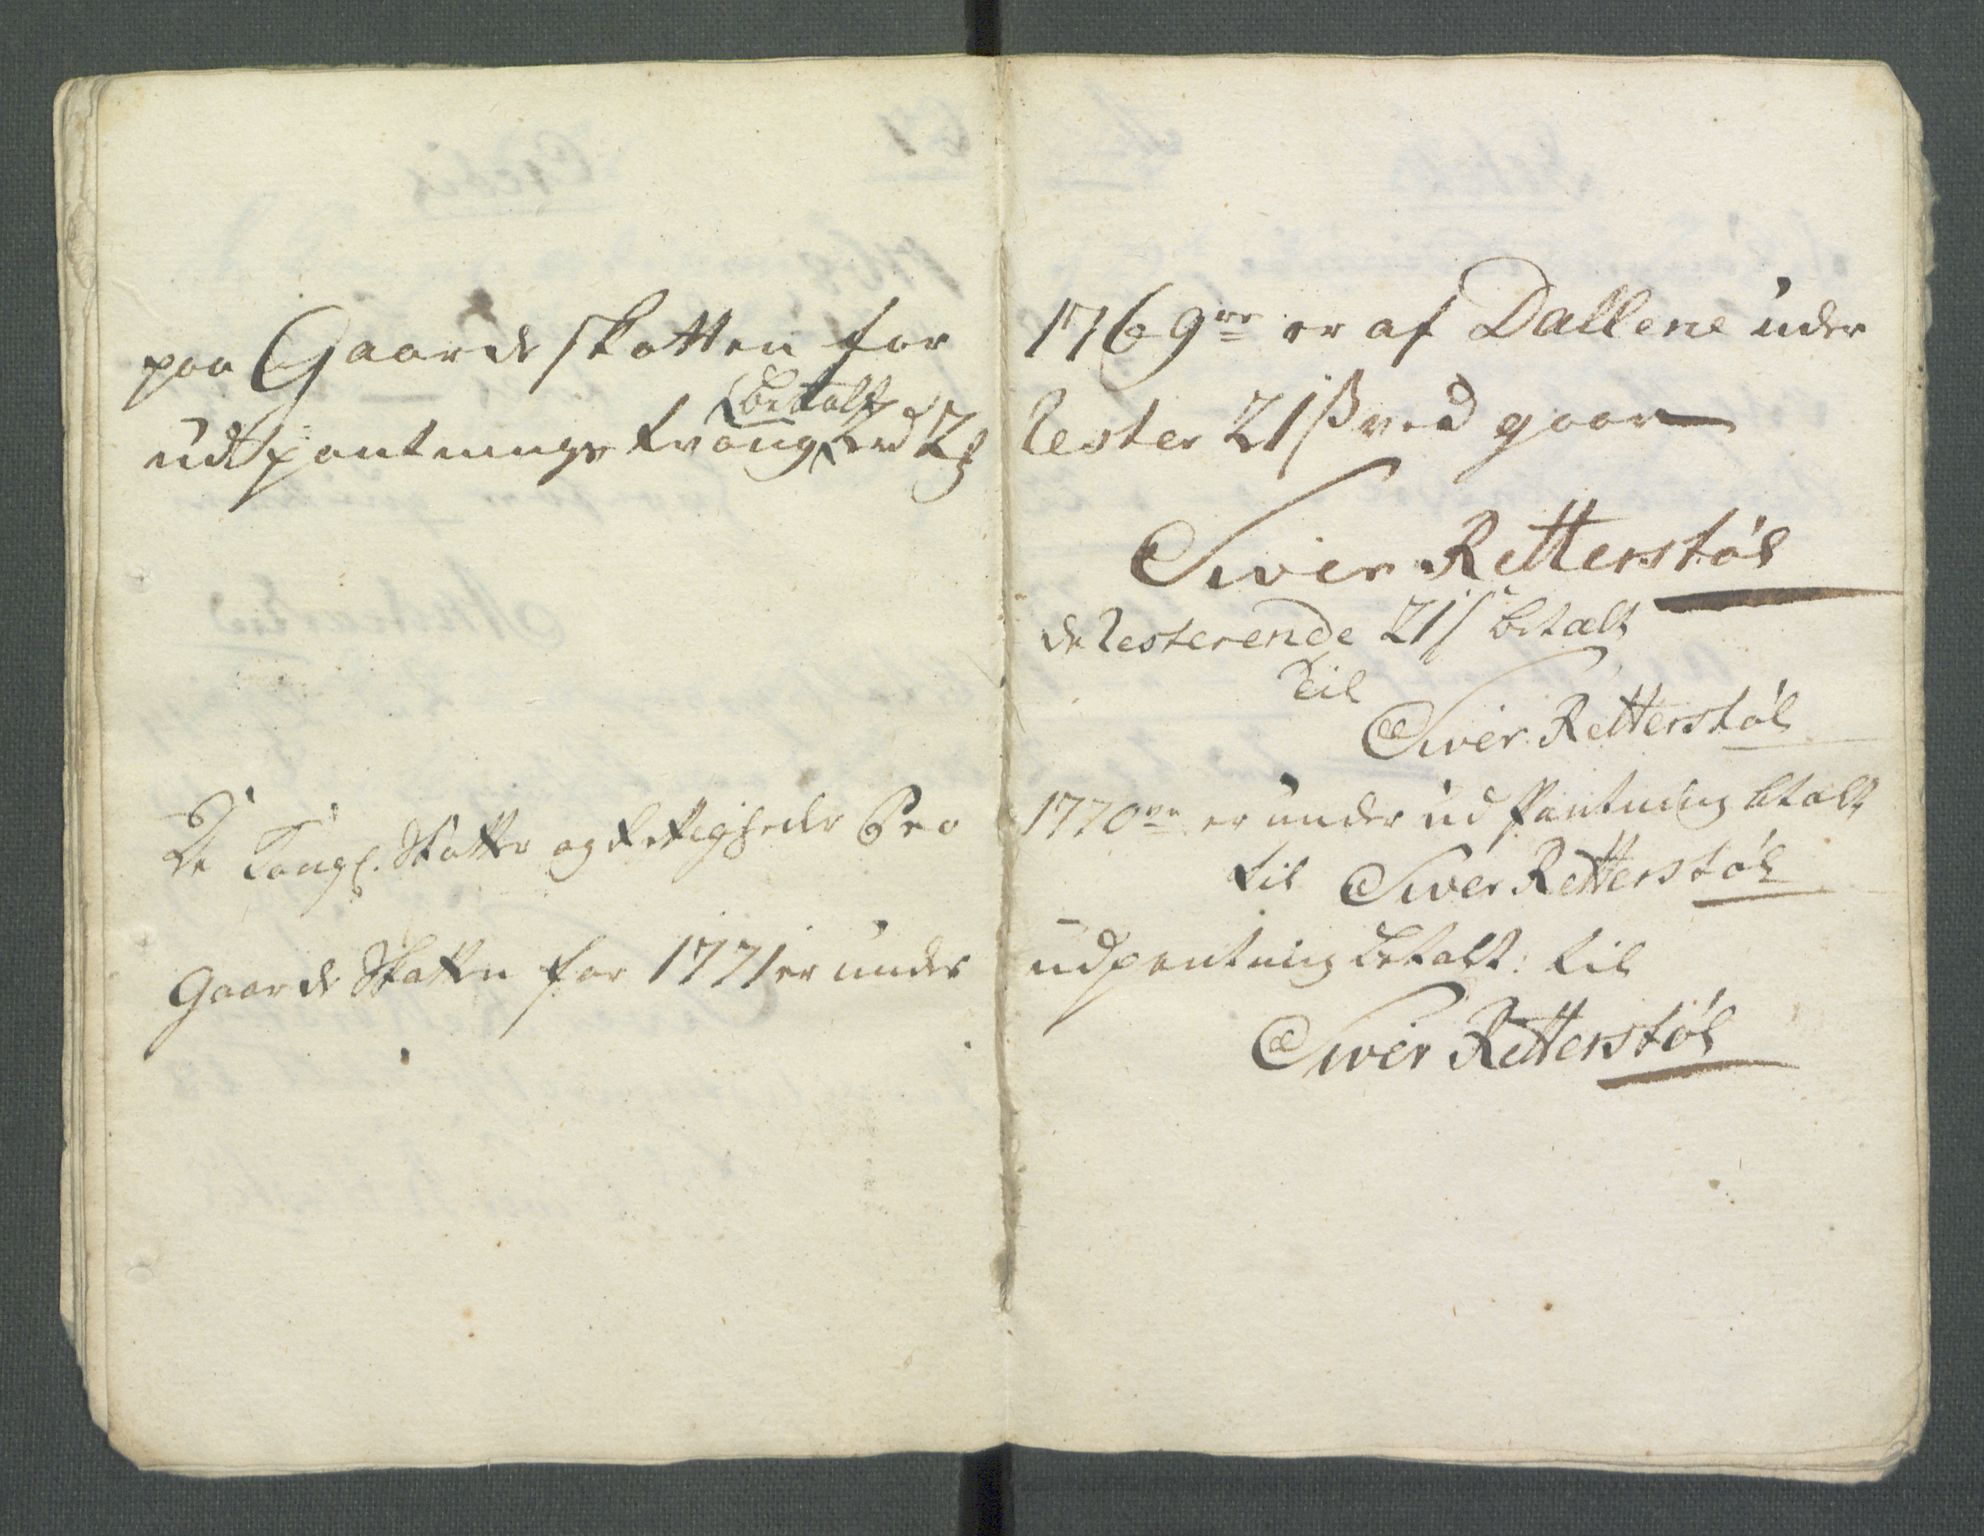 paa Gaarde skatten for 1769 er af Dallene under
udpantnings tvang betalt 2 rd 2 ß rester 21 ß ved gaar
Siver Retterstøl
de resterende 21 ß betalt
til
Siver Retterstøl
De Kongl. Skatter og Rettigheder Pro 1770 er under udpantning betalt
til Siver Retterstøl
Gaarde Skatten for 1771 er under udpantning betalt: til
Siver Retterstøl